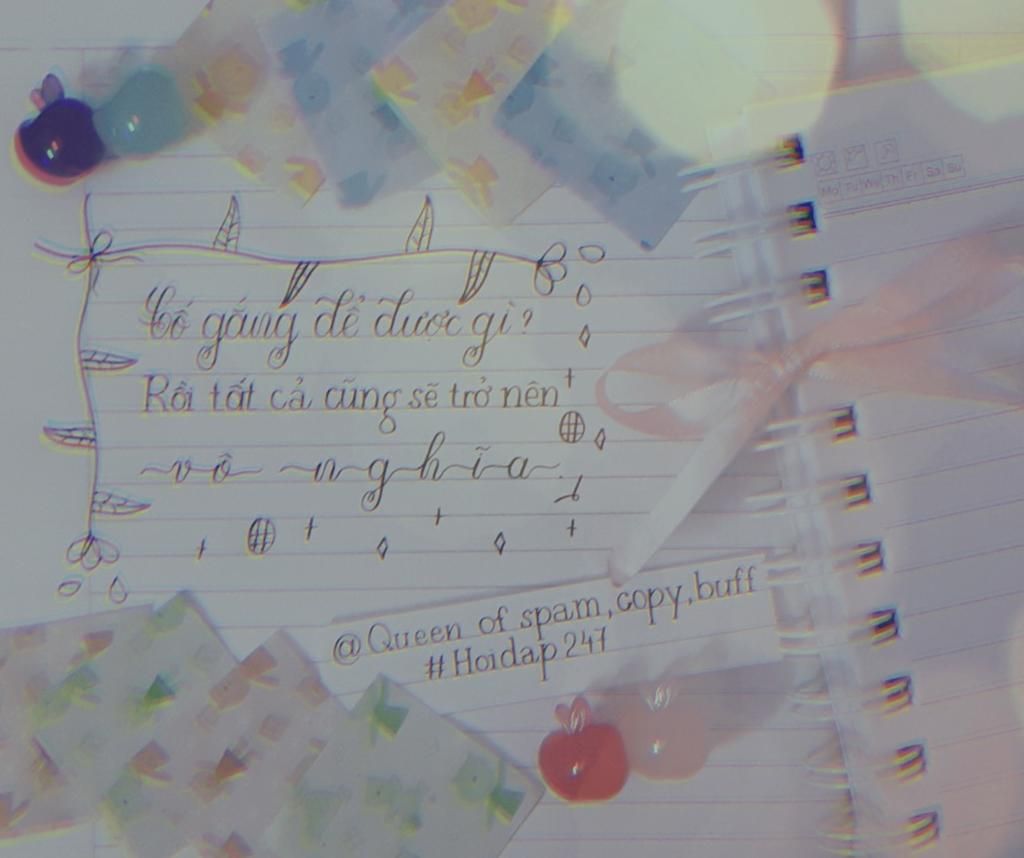 Mo Tu We Th Fr Sa Su
Cố gắng để được gì?
Rồi tất cả cũng sẽ trở nên
vô nghĩa
@Queen of spam,copy,buff
#Hoidap247